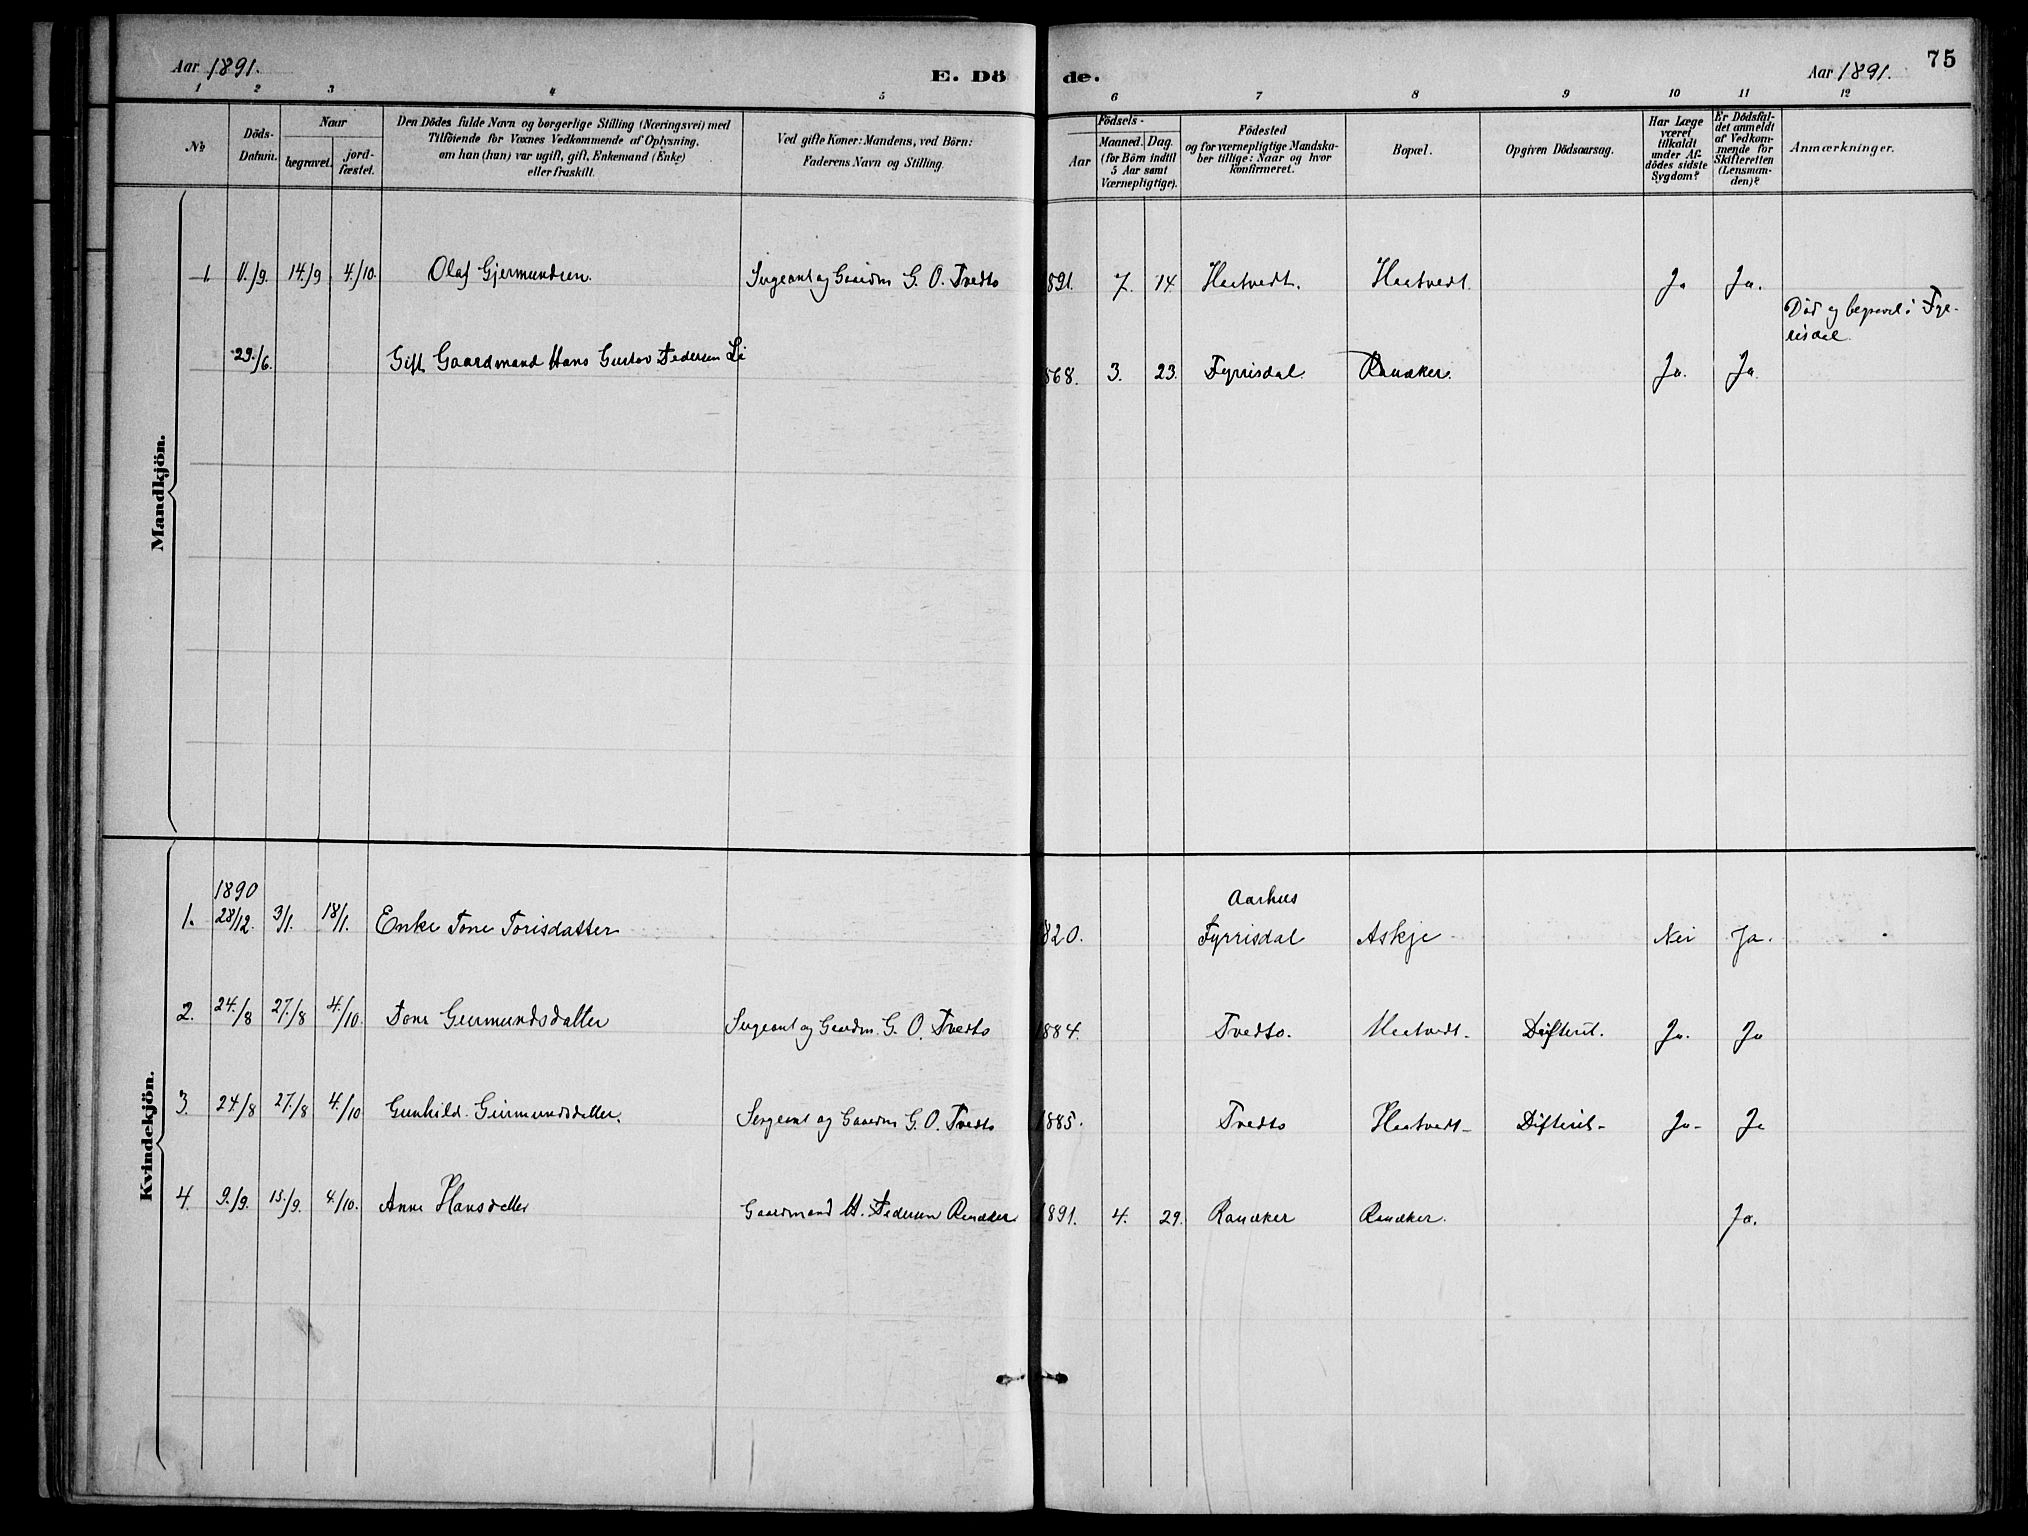 Aar 1891.
E. Döde.
Aar 1891.
75
1 2 3 4 5 6 7 8 9 10 11 12
No
Döds-Datum.
Naar
begravet.
jord-fæstet.
Den Dödes fulde Navn og borgerlige Stilling (Næringsvei) med
Tilföiende for Voxnes Vedkommende af Oplysning,
om han (hun) var ugift, gift, Enkemand (Enke)
eller fraskilt.
Ved gifte Koner: Mandens, ved Börn:
Faderens Navn og Stilling.
Födsels-
Aar
Maaned. Dag.
(for Börn indtil
5 Aar samt
Værnepligtige).
Födested
og for værnepligtige Mandska-
ber tillige: Naar og hvor
konfirmeret.
Bopæl.
Opgiven Dödsaarsag.
Har Læge
været
tilkaldt
under Af-
dödes sidste
Sygdom?
Er Dödsfal-
det anmeldt
af Vedkom-
mende for
Skifteretten
(Lensman-
den)?
Anmærkninger.
Mandkjön.
1 11./9. 14./9 4./10. Olaf Gjermundsen. Sergeant og Gaardm G. O. Tvedto 891. 7. 14. Hastvedt. Hastvedt. Ja Ja.
Död og begravet i Fyr-
risdal.
29./6. Gift Gaardmand Hans Gustav Pedersen Li 868. 3. 23. Fyrrisdal. Ranaker. Ja. Ja
Kvindekjön.
1890
Aarhus
1. 28/12. 3/1. 18/1. Enke Tone Torisdatter 820. Fyrrisdal Askje Nei Ja.
2. 24./8 27./8 4./10. Tone Geirmundsdatter Sergeant og Gaardm. G. O. Tvedto 1884. Tvedto. Hastvedt. Difterit. Ja. Ja
3. 24./8 27./8 4./10 Gunhild Geirmundsdatter. Sergeant og Gaardm G. O. Tvedto 1885. Tvedto Hastvedt Difterit Ja Ja
4. 9./9. 13./9. 4./10. Anne Hansdatter Gaardmand H. Pedersen Ranaker 1891. 4. 29. Ranaker Ranaker. Ja.